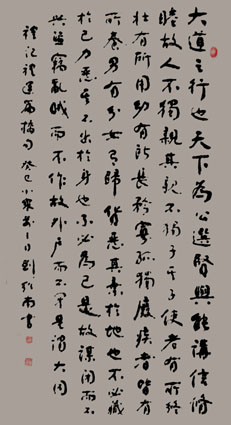 大道之行也天下為公選賢與能講信修
睦故人不獨親其親不獨子其子使老有所終
壯有所用幼有所長矜寡孤獨廢疾者皆有
所養男有分女有歸貨惡其棄於地也不必藏
於己力惡其不出於身也不必為己是故謀閉而不
興盜竊亂賊而不作故外戶而不閉是謂大同
禮記禮運篇摘句癸巳小寒日劉南書